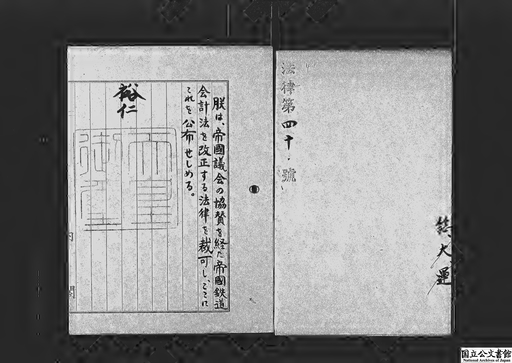 法律第四十號
朕は、帝國議会の協賛を経た帝國鉄道
会計法を改正する法律を裁可し、ここに
これを公布せしめる。
裕仁
内閣
国立公文書館
National Archives of Japan